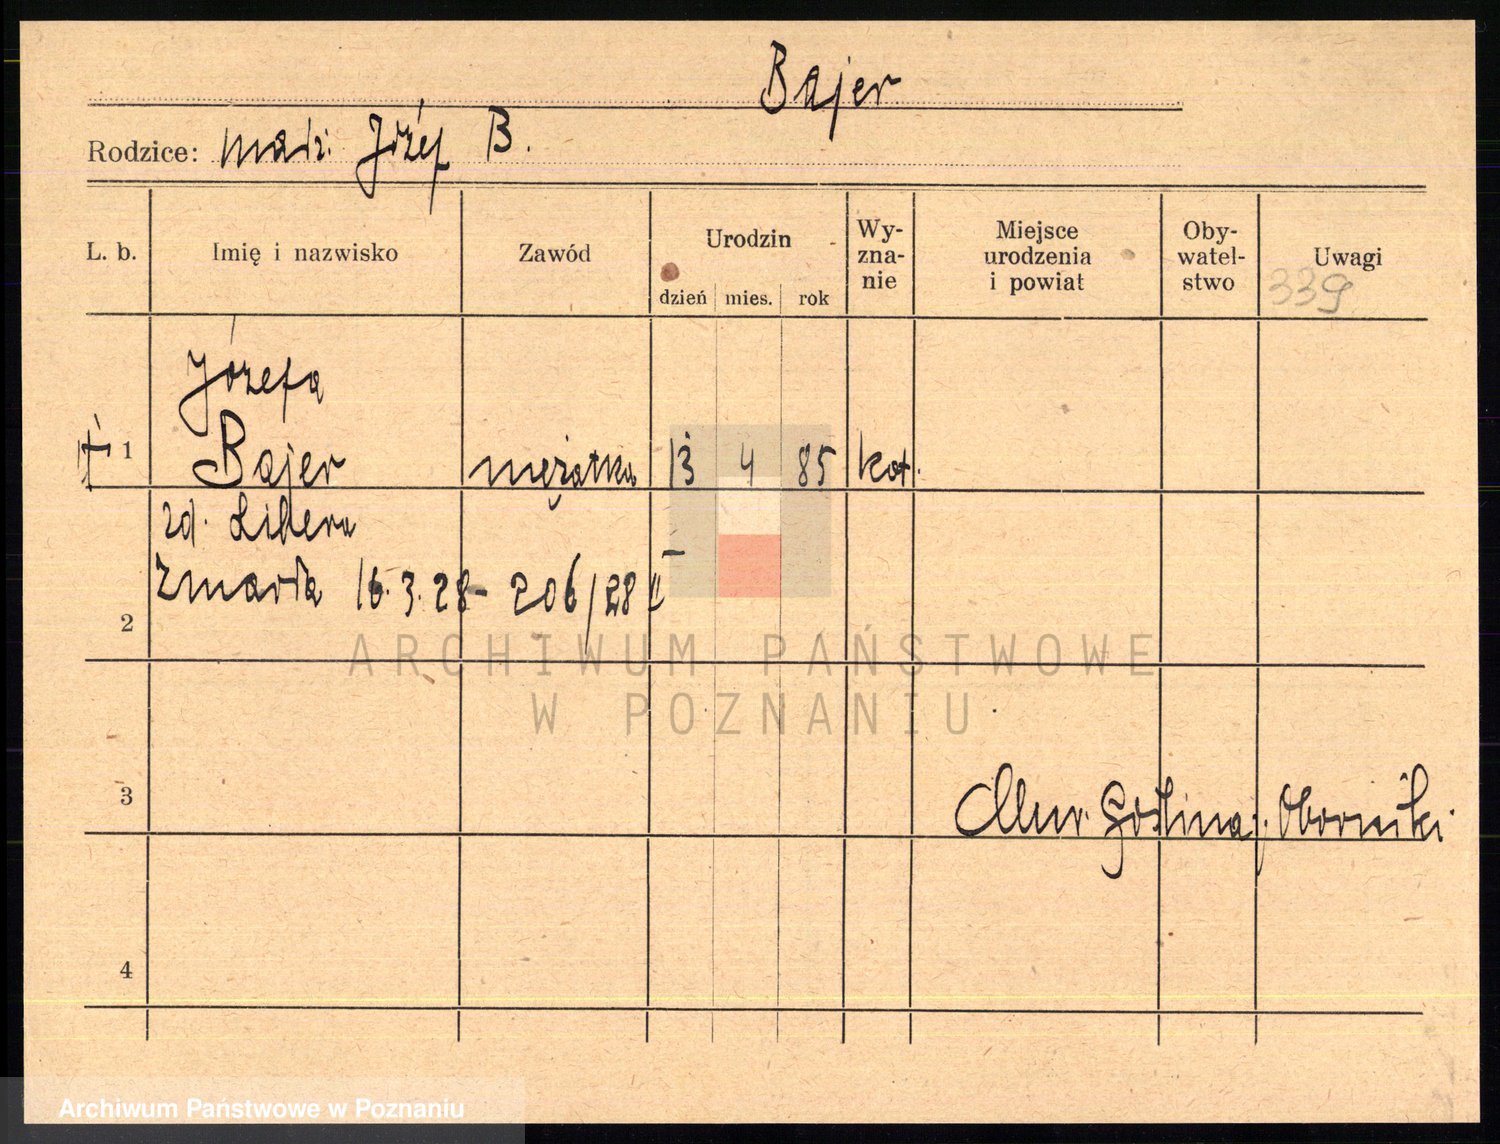 Bajer
Rodzice: mąż: Józef B.
L. b. Imię i nazwisko Zawód Urodzin dzień mies. rok Wy-zna-nie Miejsce urodzenia i powiat Oby-watel-stwo Uwagi
339
Józefa
† 1 Bajer mężatka 13 4 85 kat.
zd. Libera
zmarła 16.3.28 - 206/28 II
2
ARCHIWUM PAŃSTWOWE
W POZNANIU
3 Mur. Goślina p. Oborniki
4
Archiwum Państwowe w Poznaniu